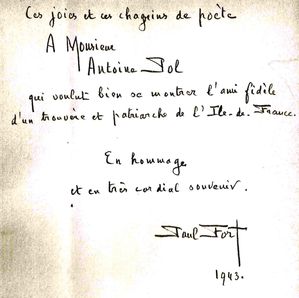 Ces joies et ces chagrins de poète
A Monsieur
Antoine Pol
qui voulut bien se montrer l'ami fidèle
d'un trouvère et patriarche de l'Ile-de-France.
En hommage
et en très cordial souvenir.
Paul Fort
1943.